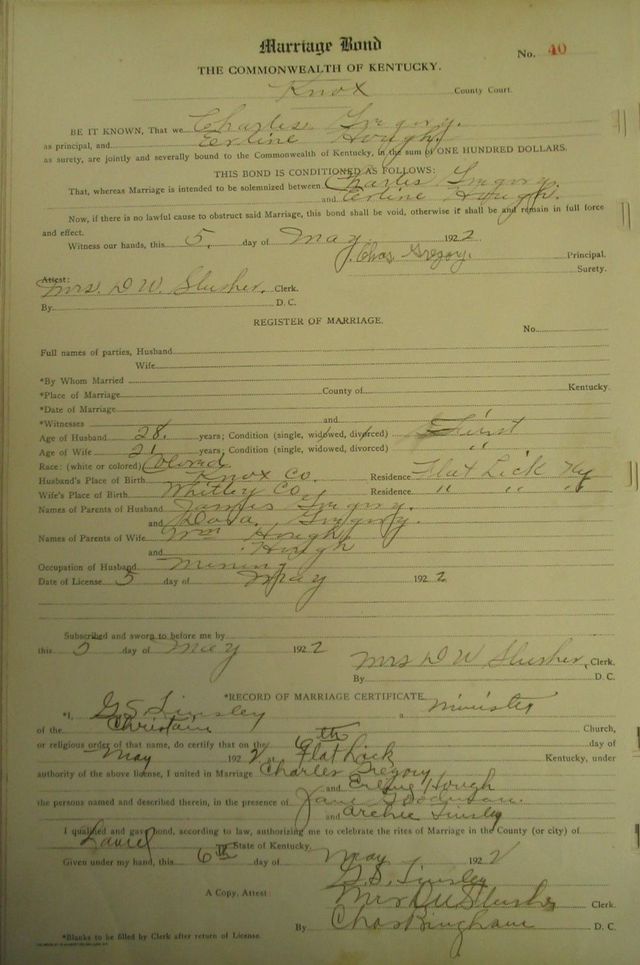 Marriage Bond
No. 40
THE COMMONWEALTH OF KENTUCKY.
Knox County Court.
BE IT KNOWN, That we Charles Gregory.
as principal, and Erline Hough.
as surety, are jointly and severally bound to the Commonwealth of Kentucky, in the sum of ONE HUNDRED DOLLARS.
THIS BOND IS CONDITIONED AS FOLLOWS:
That, whereas Marriage is intended to be solemnized between Charles Gregory.
and Erline Hough.
Now, if there is no lawful cause to obstruct said Marriage, this bond shall be void, otherwise it shall be and remain in full force
and effect.
Witness our hands, this 5, day of May 1922
Chas Gregory. Principal.
Surety.
Attest:
Mrs. D W. Slusher, Clerk.
By D. C.
REGISTER OF MARRIAGE.
No.
Full names of parties, Husband
Wife
*By Whom Married
*Place of Marriage County of Kentucky.
*Date of Marriage
*Witnesses and
Age of Husband 28. years; Condition (single, widowed, divorced) First
Age of Wife 21 years; Condition (single, widowed, divorced) " "
Race: (white or colored) Colored
Husband's Place of Birth Knox Co. Residence Flat Lick Ky
Wife's Place of Birth Whitley Co, Residence " " "
Names of Parents of Husband James Gregory.
and Dora, Gregory.
Names of Parents of Wife Wm Hough
and Hough
Occupation of Husband Mining
Date of License 5 day of May 1922
Subscribed and sworn to before me by
this 5 day of May 1922
Mrs D W Slusher, Clerk.
By D. C.
*RECORD OF MARRIAGE CERTIFICATE.
*I, G. S. Tinsley a minister
of the Christain Church,
or religious order of that name, do certify that on the 6th day of
May 1922 at Flat Lick Kentucky, under
authority of the above license, I united in Marriage Charles Gregory
and Erline Hough
the persons named and described therein, in the presence of Jane
and Archie Tinsley
I qualified and gave bond, according to law, authorizing me to celebrate the rites of Marriage in the County (or city) of
Laurel State of Kentucky.
Given under my hand, this 6th day of May 1922
G. S. Tinsley
A Copy, Attest: Mrs D W Slusher Clerk.
By Chas Bingham D. C.
*Blanks to be filled by Clerk after return of License.